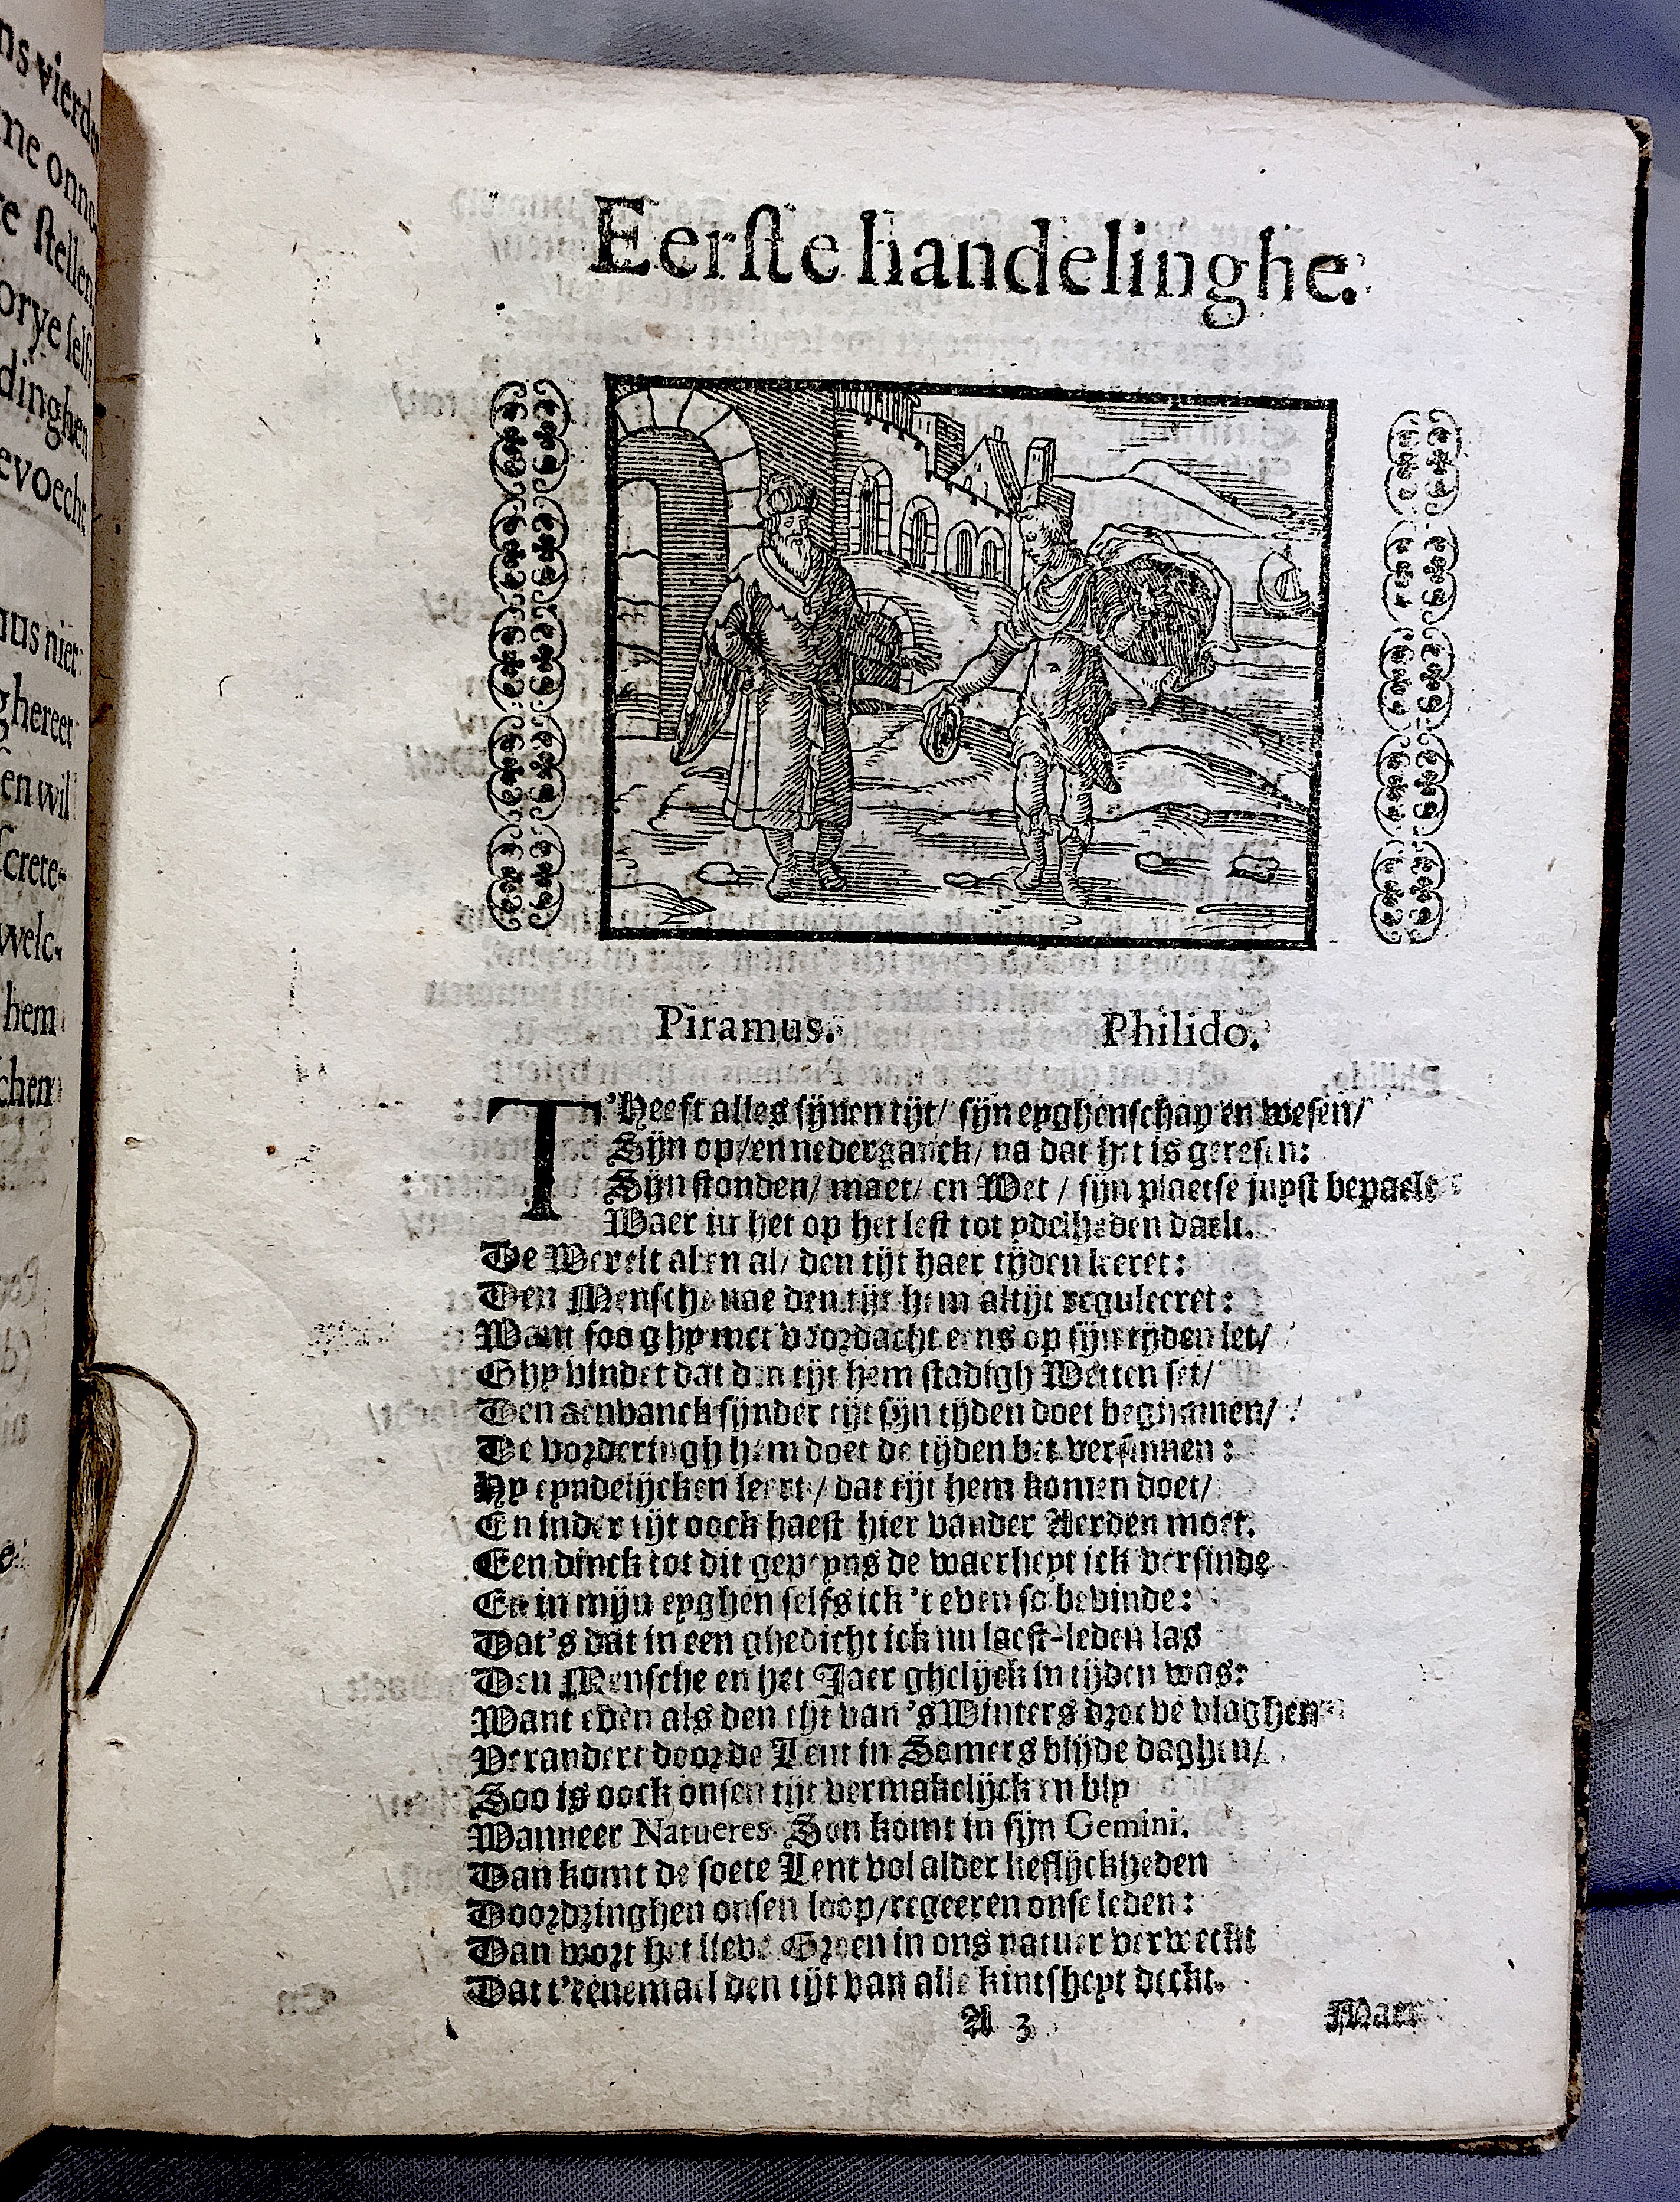 ns vierde
me onno
re ſtellen
orye ſelf
dinghen
evoecht
aus niet
ghereet
en wil
ſcrete-
welc-
hem
chen
Eerſte handelinghe.
Piramus. Philido.
T'Heeft alles ſijnen tijt/ ſijn eyghenſchap en weſen/
Sijn op/en nederganck/ na dat het is gereſen:
Sijn ſtonden/ maet/ en Wet / ſijn plaetſe juyſt bepaelt
Waer in het op het leſt tot ydelheden daelt.
De Werelt al en al/ den tijt haer tijden keeret:
Den Menſche nae den tijt hem altijt reguleeret:
Want ſoo ghy met voordacht eens op ſijn tijden let/
Ghy vindet dat den tijt hem ſtadigh Wetten ſet/
Den aenvanck ſijnder tijt ſijn tijden doet beginnen/
De vorderingh hem doet de tijden bet verſinnen:
Hy eyndelijcken leert/ dat tijt hem komen doet/
En inder tijt oock haeſt hier vander Aerden moet.
Een dinck tot dit gepeyns de waerheyt ick verſinde
En in mijn eyghen ſelfs ick 't even ſo bevinde:
Dat's dat in een ghedicht ick nu laeſt-leden las
Den Menſche en het Jaer ghelijck in tijden was:
Want even als den tijt van 's Winters droeve vlaghen
Verandert door de Lent in Somers blijde daghen/
Soo is oock onſen tijt vermakelijck en bly
Wanneer Natueres Son komt in ſijn Gemini.
Dan komt de ſoete Lent vol alder lieflijckheden
Doordringhen onſen loop/regeeren onſe leden:
Dan wort het lieve Groen in ons natuer verweckt
Dat t'eenemael den tijt van alle kintſheyt deckt.
A 3 Maer